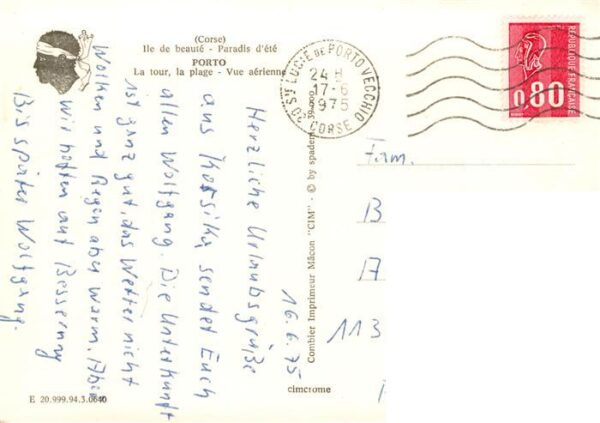 (Corse)
Ile de beauté - Paradis d'été
PORTO
La tour, la plage - Vue aérienne
16.6.75
Herzliche Urlaubsgrüße
aus Korsika sendet Euch
allen Wolfgang. Die Unterkunft
ist ganz gut, das Wetter nicht
Wolken und Regen aber warm. Aber
wir hoffen auf Besserung
Bis später Wolfgang.
E 20.999.94.3.0640
Combier Imprimeur Mâcon "CIM" - © by spadem
cimcrome
20 Ste LUCIE DE PORTO VECCHIO
24 H
17-6
1975
CORSE
0,80
REPUBLIQUE FRANÇAISE
Fam.
B
A
113